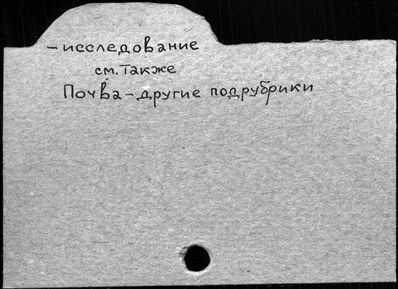 - исследование
см. также
Почва - другие подрубрики